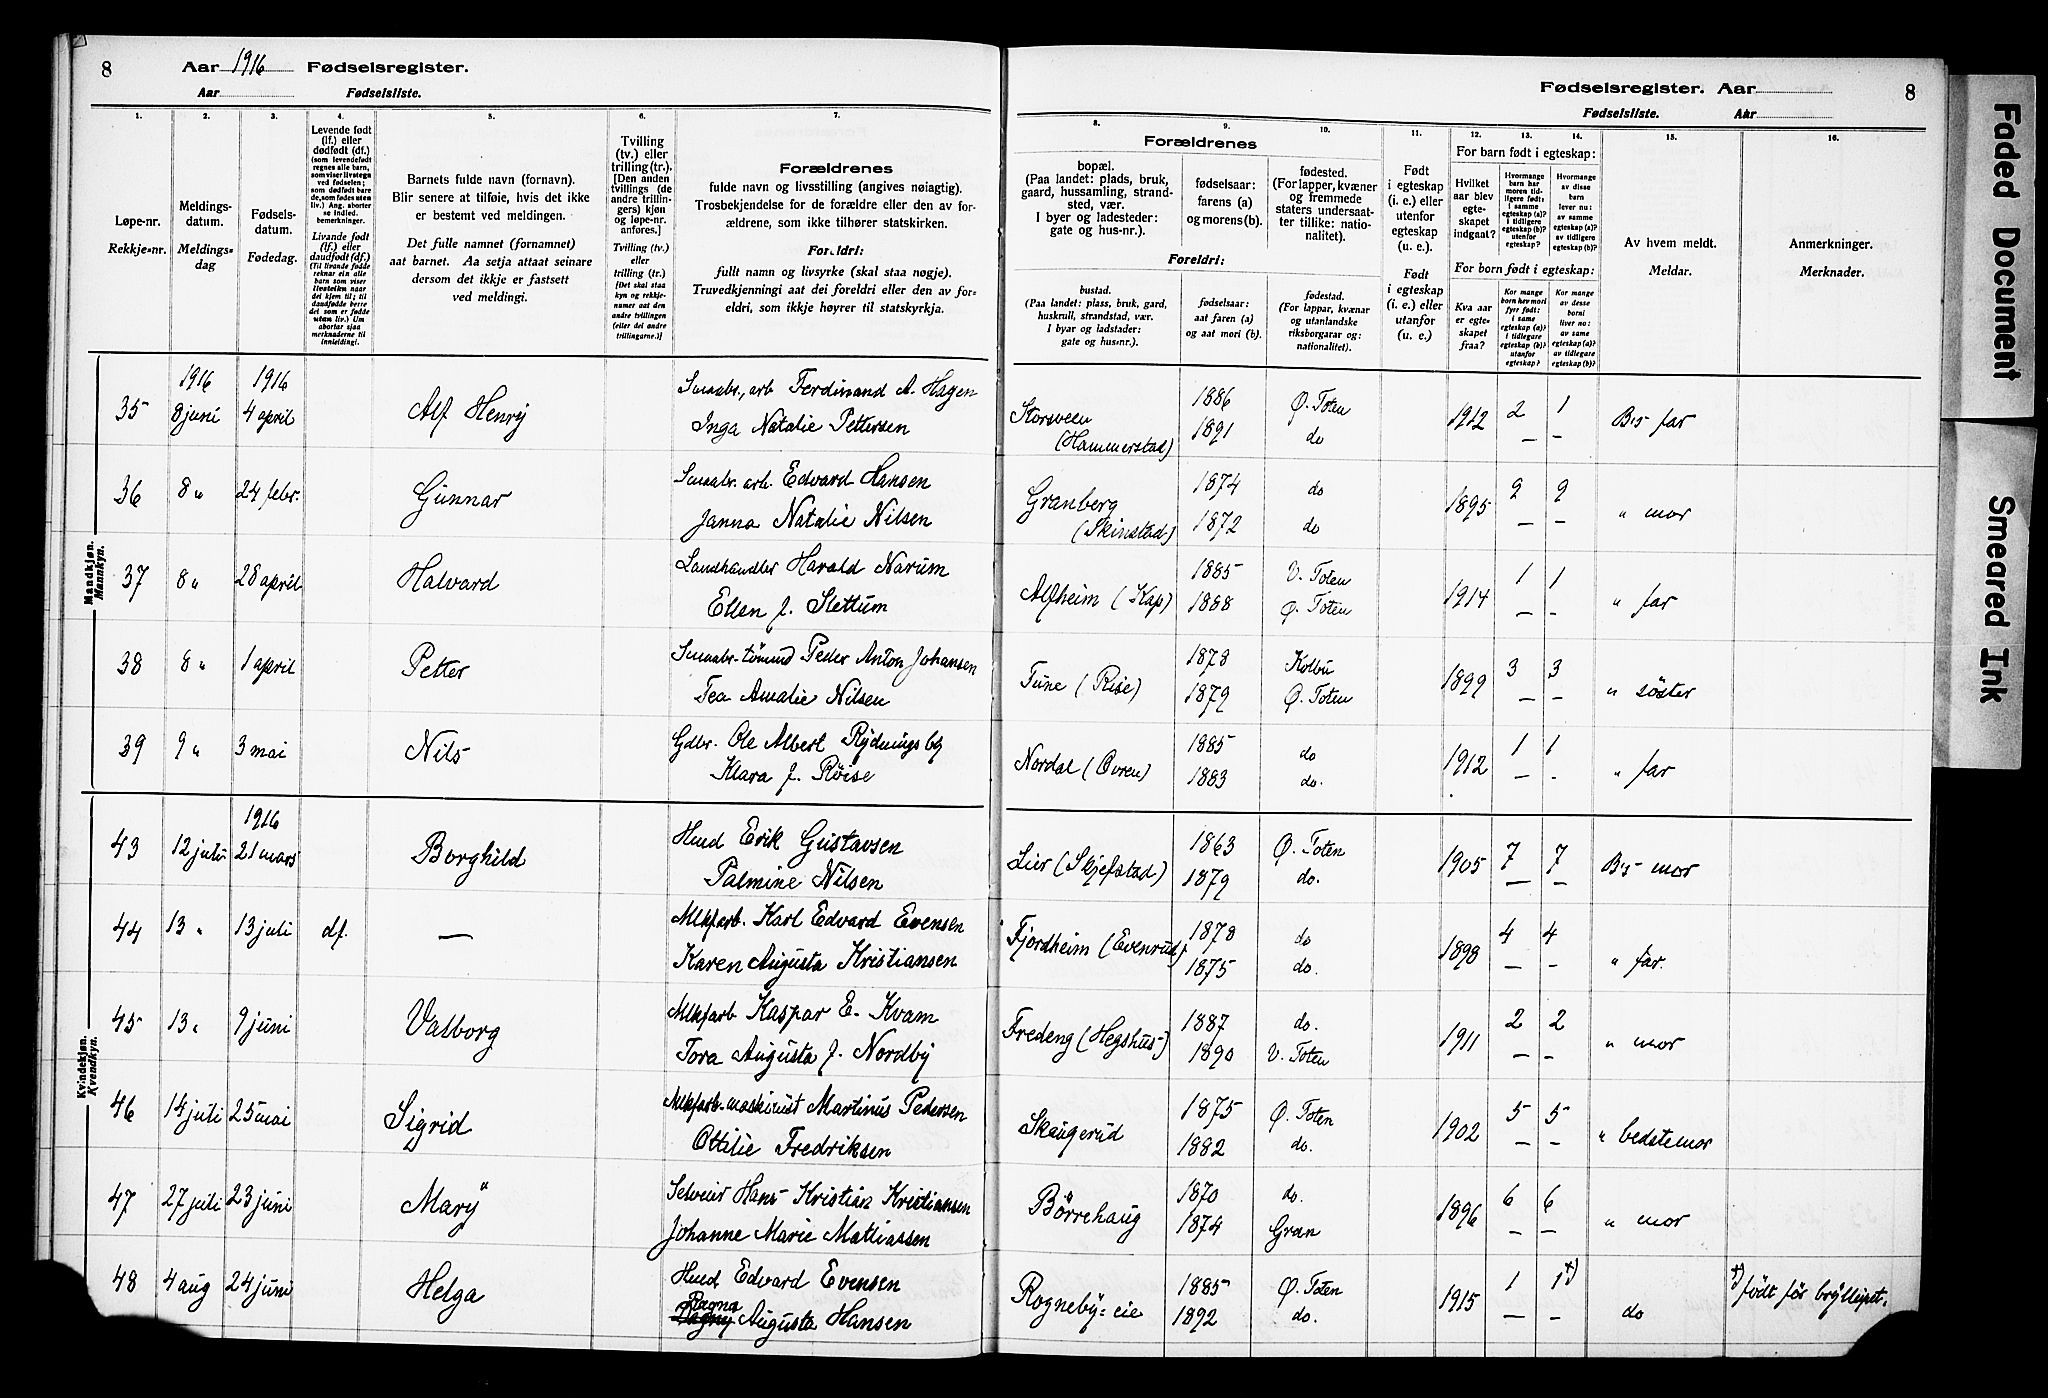 8 Aar 1916 Fødselsregister.
Aar Fødselsliste.
Fødselsregister. Aar 8
Fødselsliste. Aar
1. 2. 3. 4. 5. 6. 7. 8. 9. 10. 11. 12. 13. 14. 15. 16.
Løpe-nr.
Rekkje-nr.
Meldings-
datum.
Meldings-
dag
Fødsels-
datum.
Fødedag.
Levende født
(lf.) eller
dødfødt (df.)
(som levendefødt
regnes alle barn,
som viser livstegn
ved fødselen;
som dødfødt bare
de, som fødes uten
liv.) Ang. aborter
se indled.
bemerkninger.
Livande født
(lf.) eller
daudfødt (df.)
(Til livande fødde
reknar ein alle
born som viser
livsteikn naar
dei kjem til; til
daudfødde berre
dei som er fødde
utan liv.) Um
abortar sjaa
merknaderne til
innleiding!
Barnets fulde navn (fornavn).
Blir senere at tilføie, hvis det ikke
er bestemt ved meldingen.
Det fulle namnet (fornamnet)
aat barnet. Aa setja attaat seinare
dersom det ikkje er fastsett
ved meldingi.
Tvilling
(tv.) eller
trilling (tr.).
[Den anden
tvillings (de
andre trillin-
gers) kjøn
og løpe-nr.
anføres.]
Tvilling (tv.)
eller
trilling (tr.)
[Det skal staa
kyn og rekkje-
numer aat den
andre tvillingen
(eller dei andre
trillingarne.)]
Forældrenes
fulde navn og livsstilling (angives nøiagtig).
Trosbekjendelse for de forældre eller den av for-
ældrene, som ikke tilhører statskirken.
Foreldri:
fullt namn og livsyrke (skal staa nøgje).
Truvedkjenningi aat dei foreldri eller den av for-
eldri, som ikkje høyrer til statskyrkja.
Forældrenes
bopæl.
(Paa landet: plads, bruk,
gaard, hussamling, strand-
sted, vær.
I byer og ladesteder:
gate og hus-nr.).
fødselsaar:
farens (a)
og morens (b).
fødested.
(For lapper, kvæner
og fremmede
staters undersaat-
ter tillike: natio-
nalitet).
Foreldri:
bustad.
(Paa landet: plass, bruk, gard,
huskrull, strandstad, vær.
I byar og ladstader:
gate og hus-nr.).
fødselsaar:
aat faren (a)
og aat mori (b).
fødestad.
(For lappar, kvæner
og utanlandske
riksborgarar og:
nationalitet).
Født
i egteskap
(i. e.) eller
utenfor
egteskap
(u. e.).
Født
i egteskap
(i. e.) eller
utanfor
(u. e.).
For barn født i egteskap:
Hvilket
aar blev
egte-
skapet
indgaat?
Hvormange
barn har
moren tid-
ligere født:
i samme
egteskap (a)?
i tidligere
egteskap (b)?
utenfor
egteskap?
Hvormange
av disse
barn
lever nu:
av samme
egteskap (a)?
av tidligere
egteskap (b)?
For born født i egteskap:
Kva aar
er egte-
skapet
fraa?
Kor mange
born hev mori
fyrr født:
i same
egteskap (a)?
i tidlegare
egteskap (b)?
utanfor
egteskap?
Kor mange
av desse
borni
liver no:
av same
egteskap (a)?
av tidlegare
egteskap (b)?
Av hvem meldt.
Meldar.
Anmerkninger.
Merknader.
Mandkjøn.
Mannkyn.
1916 1916
35 8 juni 4 april Alf Henry Smaabr., arb Ferdinand A. Hagen Storsveen 1886 Ø. Toten 1912 2 1 Bs- far
Inga Natalie Pettersen (Hammerstad) 1891 do — —
36 8 " 24 febr. Gunnar Smaabr. arb. Edvard Hansen Granberg 1874 do 1895 9 9 " mor
Janna Natalie Nilsen (Skinstad) 1872 do — —
37 8 " 28 april Halvard Landhandler Harald Narum Alfheim (Kap) 1885 V. Toten 1914 1 1 " far
Ellen f. Slettum 1888 Ø. Toten — —
38 8 " 1 april Petter Smaabr-tømmd Peder Anton Johansen Tune (Rise) 1878 Kolbu 1899 3 3 " søster
Tea Amalie Nilsen 1879 Ø. Toten — —
39 9 " 3 mai Nils Gdbr. Ole Albert Rydningsby Nordal (Øvren) 1885 do 1912 1 1 " far
Klara f. Røise 1883 do. — -
Kvindekjøn.
Kvendkyn.
1916
43 12 juli 21 mars Borghild Hmd Erik Gustavsen Lier (Skjefstad) 1863 Ø. Toten 1905 7 7 Bs- mor
Palmine Nilsen 1879 do. — —
44 13 " 13 juli df. — Mlkfarb. Karl Edvard Evensen Fjordheim (Evenrud) 1878 do 1898 4 4 " far.
Karen Augusta Kristiansen 1875 do. — —
45 13 " 9 juni Valborg Mlkfarb Kaspar E. Kvam Fredeng (Hegshus) 1887 do. 1911 2 2 " mor
Tora Augusta f. Nordby 1890 V. Toten — —
46 14 juli 25 mai Sigrid Mlkfarb-maskinist Martinus Pedersen Skaugerud 1875 Ø. Toten 1902 5 5 " bedstemor
Ottilie Fredriksen 1882 do. — —
47 27 juli 23 juni Mary Selveier Hans Kristian Kristiansen Børrehaug 1870 do. 1896 6 6 " mor
Johanne Marie Mathiassen 1874 Gran — —
48 4 aug 24 juni Helga Hmd Edvard Evensen Rogneby-eie 1885 Ø. Toten 1915 1 1 +) do +) født før bryllupet.
Ragna
Dagny Augusta Hansen 1892 do. — —
Faded Document
Smeared Ink